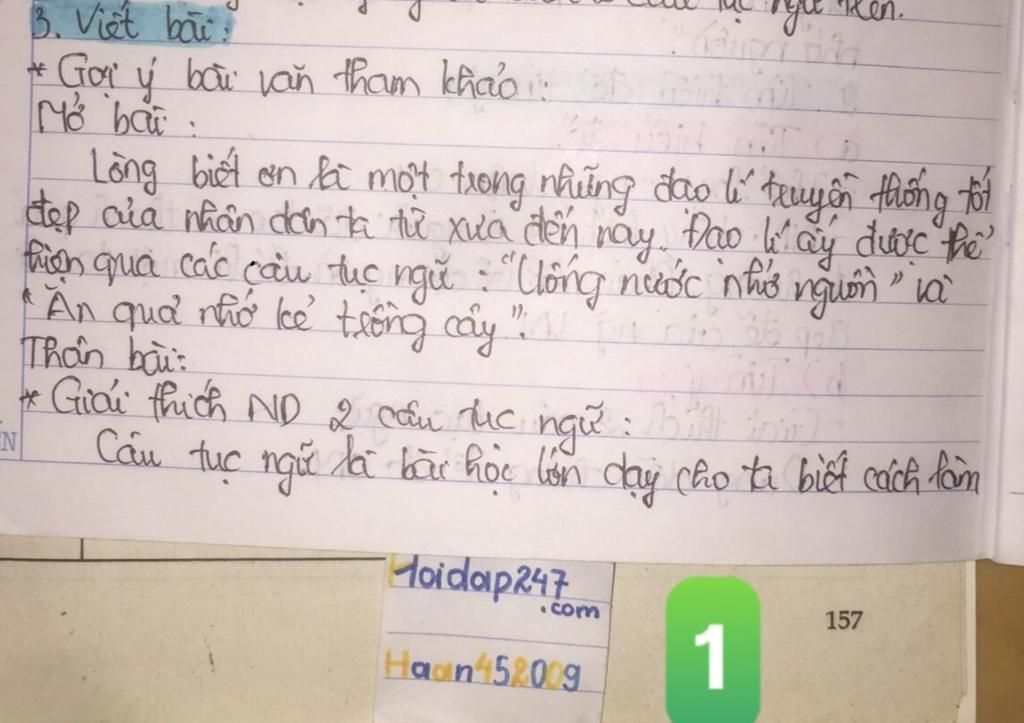 tục ngữ trên.
3. Viết bài:
* Gợi ý bài văn tham khảo:
Mở bài:
Lòng biết ơn là một trong những đạo lí truyền thống tốt
đẹp của nhân dân ta từ xưa đến nay. Đạo lí ấy được thể
hiện qua các câu tục ngữ: "Uống nước nhớ nguồn" và
"Ăn quả nhớ kẻ trồng cây".
Thân bài:
* Giải thích ND 2 câu tục ngữ:
Câu tục ngữ là bài học lớn dạy cho ta biết cách làm
Hoidap247
.com
157
1
Haan452009